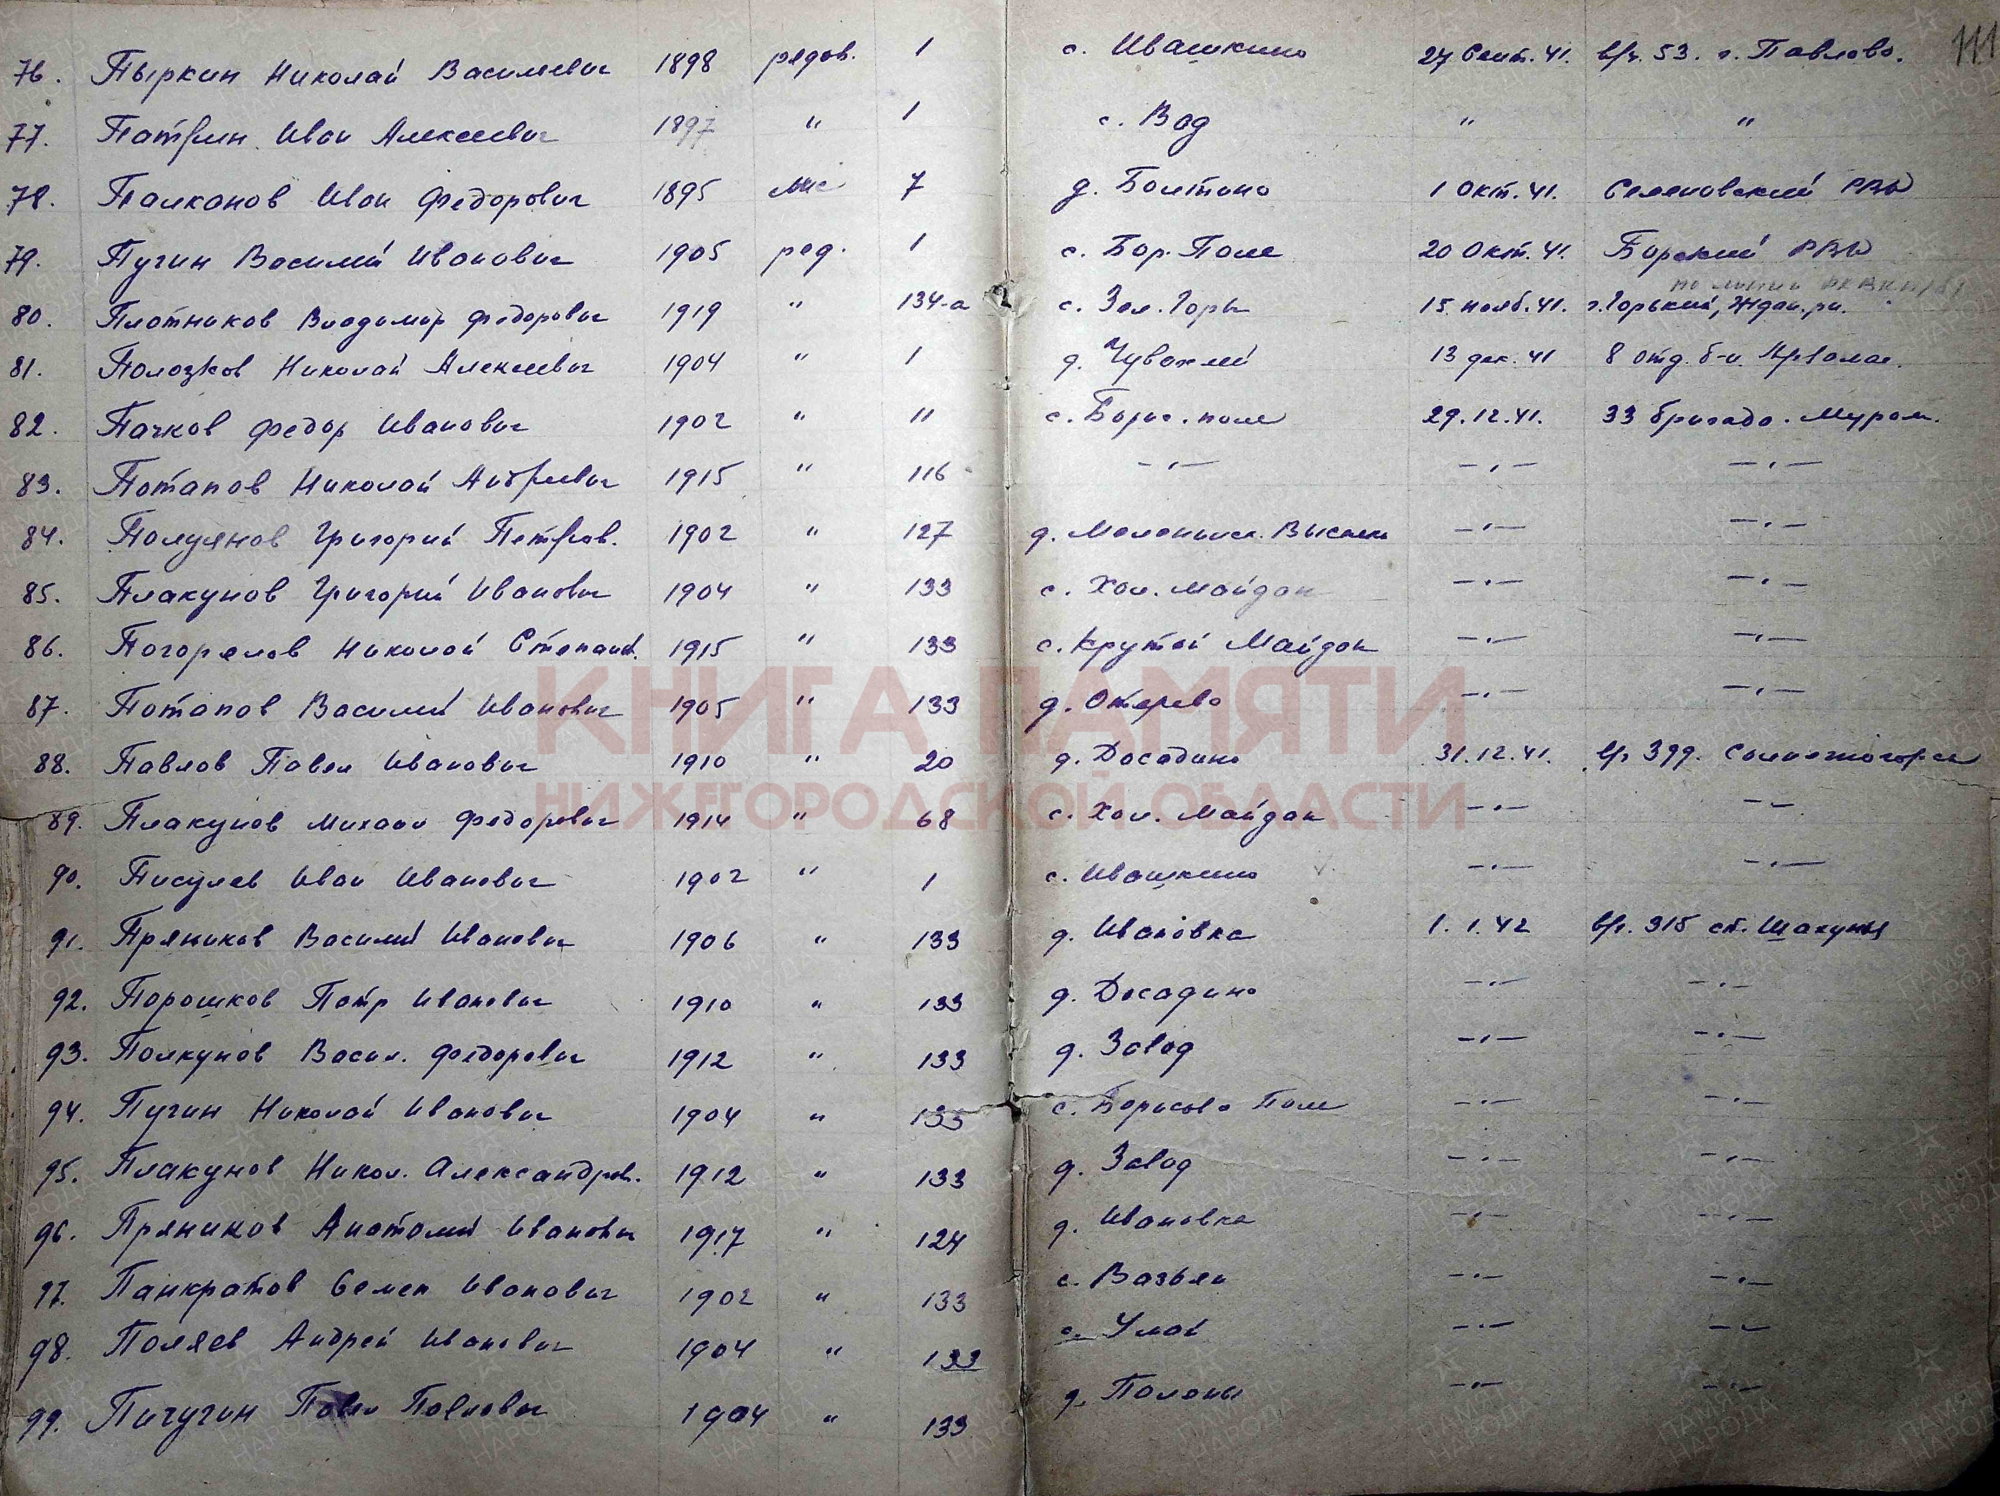 111
76. Пыркин Николай Васильевич 1898 рядов. 1 с. Ивашкино 27 Сент. 41. в/ч. 53. г. Павлово.
77. Патрин Иван Алексеевич 1897 " 1 с. Вад " "
78. Палканов Иван Федорович 1895 мнс 7 д. Болтино 1 Окт. 41. Семеновский РВК
79. Пугин Василий Иванович 1905 ряд. 1 с. Бор. Поле 20 Окт. 41. Борский РВК
по линии
80. Плотников Владимир Федорович 1919 " 134-а с. Зел. Горы 15 нояб. 41. г. Горький, Ждан. рн.
81. Полозков Николай Алексеевич 1904 " 1 д. Чувахлей 13 дек. 41 8 отд. б-н. Арзамас.
82. Пачков Федор Иванович 1902 " 11 с. Борис. поле 29.12.41. 33 бригада. Муром.
83. Потапов Николай Андреевич 1915 " 116 -"- -"- -"-
84. Полуянов Григорий Петров. 1902 " 127 д. Выселки -"- -"-
85. Плакунов Григорий Иванович 1904 " 133 с. Хол. Майдан -"- -"-
86. Погорелов Николай Степанов. 1915 " 133 с. Крутой Майдан -"- -"-
87. Потапов Василий Иванович 1905 " 133 д. Отерево -"- -"-
88. Павлов Павел Иванович 1910 " 20 д. Досадино 31.12.41. в/ч 399. Солнечногорск
89. Плакунов Михаил Федорович 1914 " 68 с. Хол. Майдан -"- -"-
90. Писулев Иван Иванович 1902 " 1 с. Ивашкино -"- -"-
91. Пряников Василий Иванович 1906 " 133 д. Ивановка 1.1.42 в/ч. 315 ст. Шахунья
92. Порошков Петр Иванович 1910 " 133 д. Досадино -"- -"-
93. Полкунов Васил. Федорович 1912 " 133 д. Завод -"- -"-
94. Пугин Николай Иванович 1904 " 133 с. Борисово Поле -"- -"-
95. Плакунов Никол. Александров. 1912 " 133 д. Завод -"- -"-
96. Пряников Анатолий Иванович 1917 " 124 д. Ивановка -"- -"-
97. Панкратов Семен Иванович 1902 " 133 с. Вазьян -"- -"-
98. Поляев Андрей Иванович 1904 " 133 с. Умай -"- -"-
99. Пичугин Павел Павлович 1904 " 133 д. Поляны -"- -"-
КНИГА ПАМЯТИ
НИЖЕГОРОДСКОЙ ОБЛАСТИ